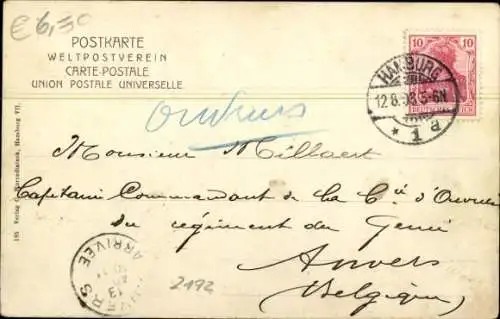 €6,50
POSTKARTE
WELTPOSTVEREIN
CARTE-POSTALE
UNION POSTALE UNIVERSELLE
10 10
HAMBURG
12.8.08.5-6N
* 1 a
Monsieur Millaert
Capitaine Commandant de la Cie d'Ouvriers
du régiment du Génie
Anvers
(Belgique)
ARRIVÉE
13
2192
Hamburg VII.